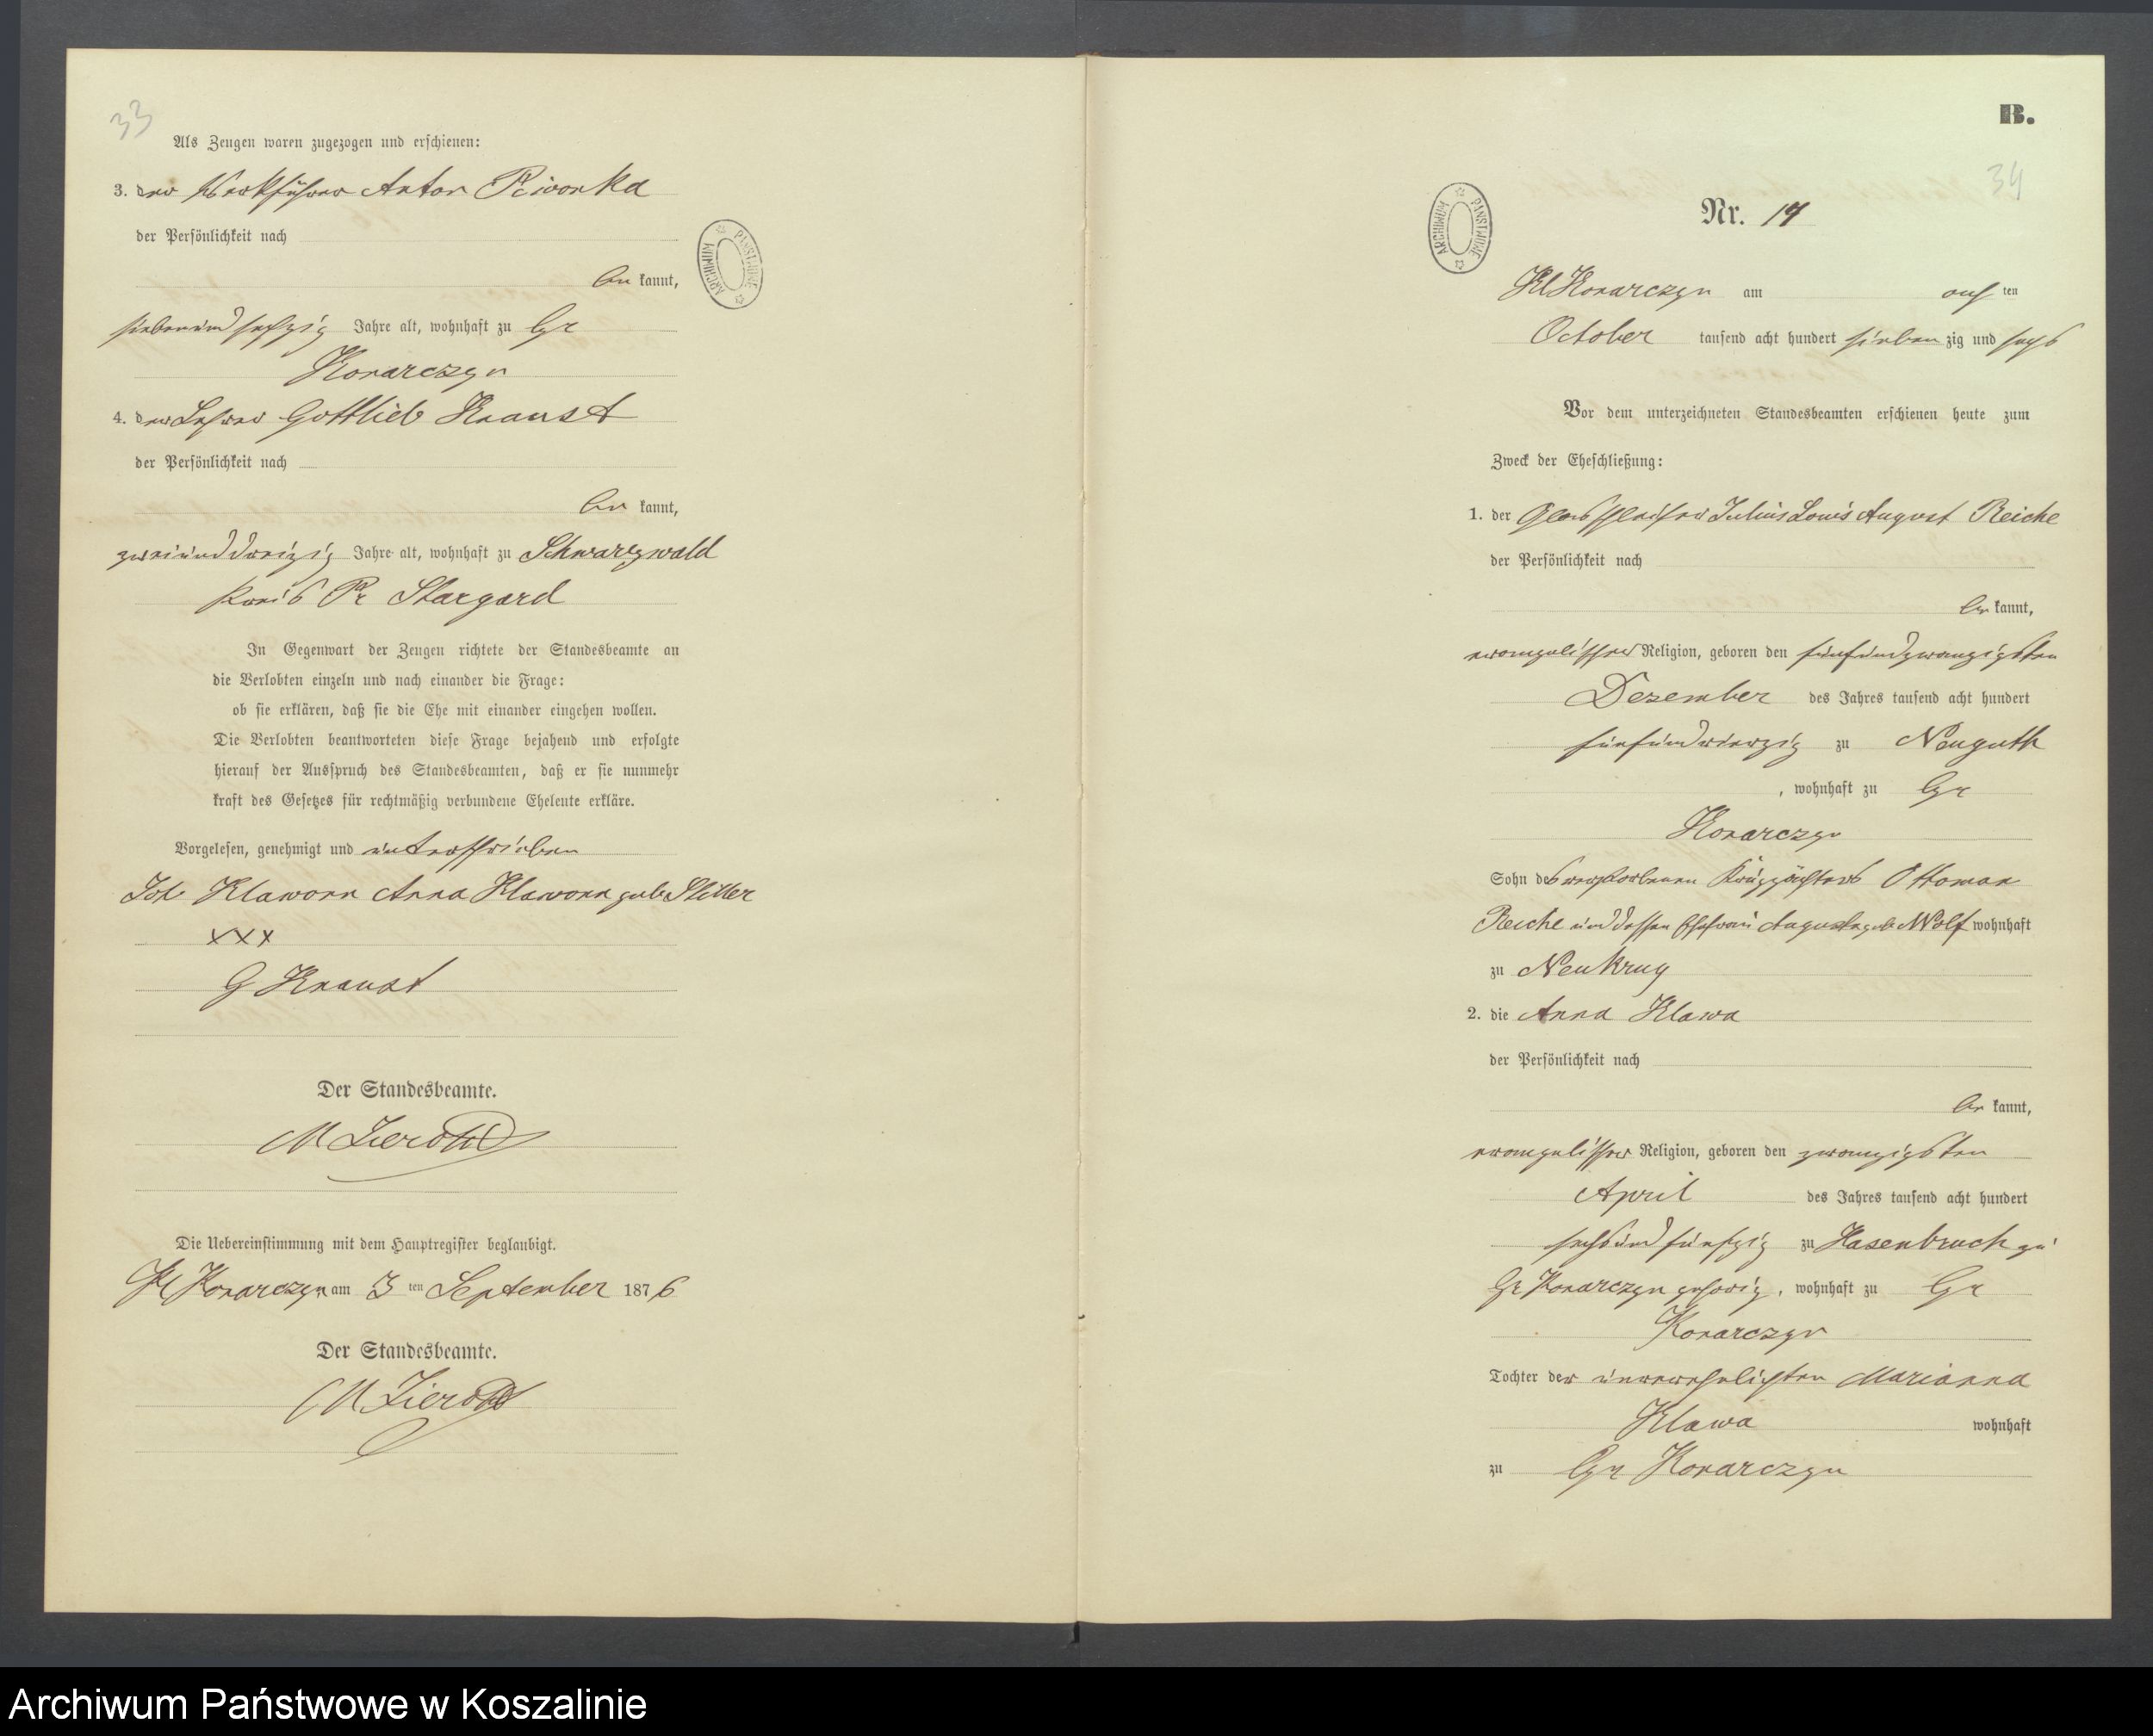 33
Als Zeugen waren zugezogen und erschienen:
3. der Werkführer Anton Piwonka
der Persönlichkeit nach
be kannt,
siebenundsechzig Jahre alt, wohnhaft zu Gr
Konarczyn
4. der Lehrer Gottlieb Knaust
der Persönlichkeit nach
be kannt,
zweiunddreizig Jahre alt, wohnhaft zu Schwarzwald
Kreis Pr Stargard
In Gegenwart der Zeugen richtete der Standesbeamte an
die Verlobten einzeln und nach einander die Frage:
ob sie erklären, daß sie die Ehe mit einander eingehen wollen.
Die Verlobten beantworteten diese Frage bejahend und erfolgte
hierauf der Ausspruch des Standesbeamten, daß er sie nunmehr
kraft des Gesetzes für rechtmäßig verbundene Eheleute erkläre.
Vorgelesen, genehmigt und unterschrieben
Joh Klawonn Anna Klawonn geb
xxx
G Knaust
Der Standesbeamte.
M
Die Uebereinstimmung mit dem Hauptregister beglaubigt.
Kl Konarczyn am 3 ten September 1876
Der Standesbeamte.
M
ARCHIWUM PAŃSTWOWE
B.
34
ARCHIWUM PAŃSTWOWE
Nr. 14
Kl Konarczyn am acht ten
October tausend acht hundert sieben zig und sechs
Vor dem unterzeichneten Standesbeamten erschienen heute zum
Zweck der Eheschließung:
1. der Glasschleifer Julius Louis August Reiche
der Persönlichkeit nach
be kannt,
evangelischer Religion, geboren den fünfundzwanzigsten
Dezember des Jahres tausend acht hundert
fünfundvierzig zu Neuguth
, wohnhaft zu Gr
Konarczyn
Sohn des verstorbenen Krugpächters Ottomar
Reiche und dessen Ehefrau Augusta geb Wolf wohnhaft
zu Neukrug
2. die Anna Klawa
der Persönlichkeit nach
be kannt,
evangelischer Religion, geboren den zwanzigsten
April des Jahres tausend acht hundert
sechsundfünfzig zu Hasenbruch zu
Gr Konarczyn gehörig, wohnhaft zu Gr
Konarczyn
Tochter der unverehelichten Marianna
Klawa wohnhaft
zu Gr Konarczyn
Archiwum Państwowe w Koszalinie